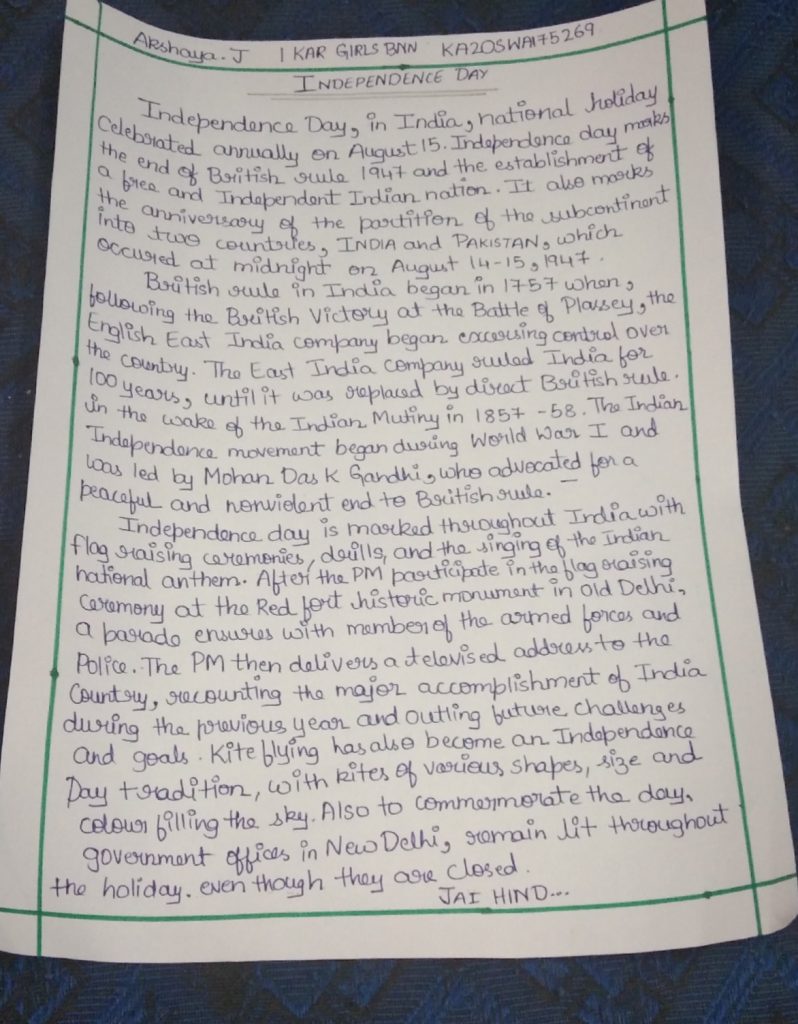 Akshaya. J 1 KAR GIRLS BNN KA20SWA175269
INDEPENDENCE DAY
Independence Day, in India, national holiday
Celebrated annually on August 15. Independence day marks
the end of British rule 1947 and the establishment of
a free and Independent Indian nation. It also marks
the anniversary of the partition of the subcontinent
into two countries, INDIA and PAKISTAN, which
occured at midnight on August 14-15, 1947.
British rule in India began in 1757 when,
following the British Victory at the Battle of Plassey, the
English East India company began excersing control over
the country. The East India company ruled India for
100 years, until it was replaced by direct British rule.
in the wake of the Indian Mutiny in 1857 -58. The Indian
Independence movement began during World War I and
was led by Mohan Das K Gandhi, who advocated for a
peaceful and nonviolent end to British rule.
Independence day is marked throughout India with
flag raising ceremonies, drills, and the singing of the Indian
national anthem. After the PM participate in the flag raising
Ceremony at the Red fort historic monument in old Delhi,
a parade ensures with member of the armed forces and
Police. The PM then delivers a televised address to the
Country, recounting the major accomplishment of India
during the previous year and outling future challenges
and goals. Kite flying has also become an Independence
Day tradition, with kites of various shapes, size and
colour filling the sky. Also to commermorate the day,
government offices in New Delhi, remain lit throughout
the holiday. even though they are closed.
JAI HIND...